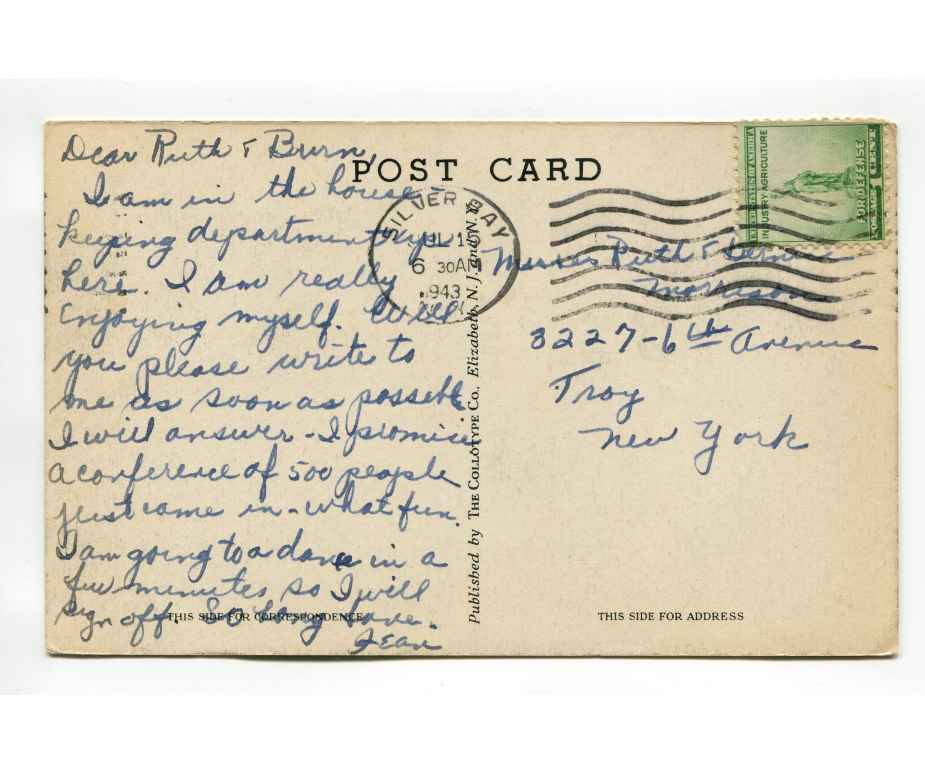 Dear Ruth & Bern,
I am in the house-
keeping department
here. I am really
enjoying myself. Will
you please write to
me as soon as possible
I will answer - I promise
A conference of 500 people
just came in - what fun.
I am going to a dance in a
few minutes so I will
sign off. So long
Jean
THIS SIDE FOR CORRESPONDENCE
POST CARD
SILVER BAY
JUL 1
6 30AM
1943
N.Y.
Published by THE COLLOTYPE CO., Elizabeth, N. J. and N. Y.
UNITED STATES OF AMERICA
INDUSTRY AGRICULTURE
FOR DEFENSE
1 CENT
POSTAGE
Misses Ruth & Bernice
Morrison
3227-6th Avenue
Troy
New York
THIS SIDE FOR ADDRESS